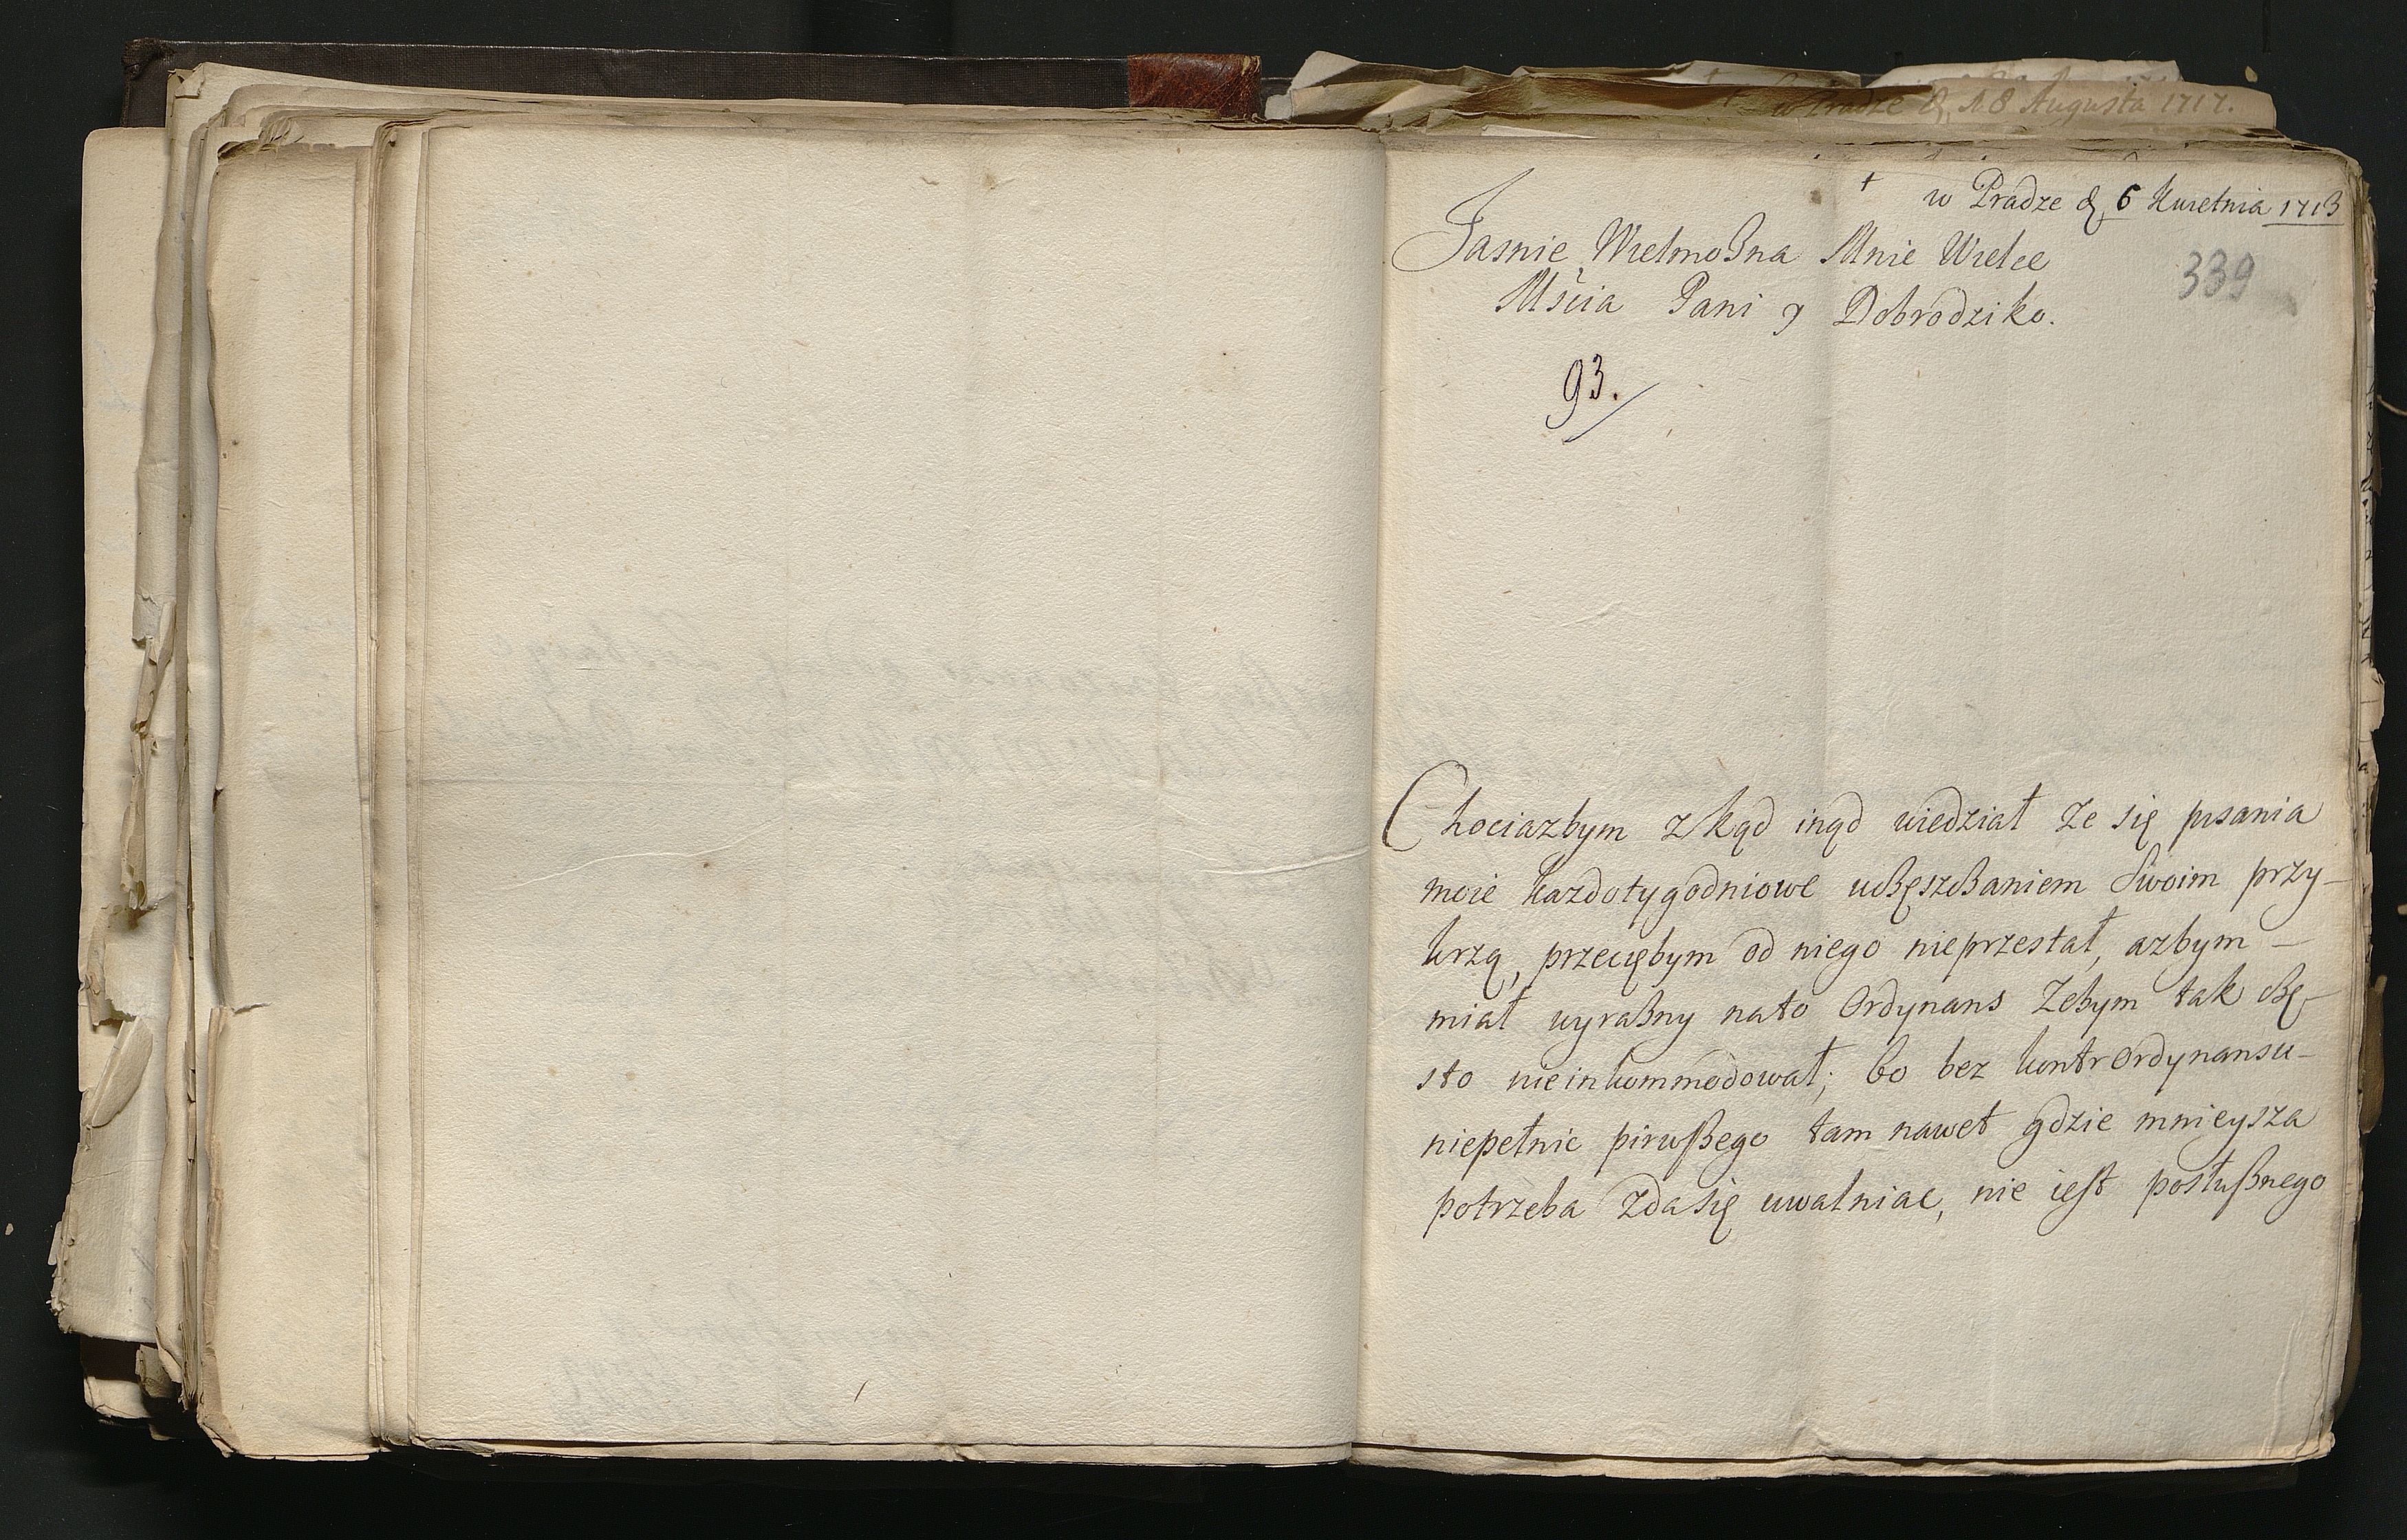 w Pradze d. 18 Augusta 1717.
† w Pradze d. 6 Kwietnia 1713
339
Jasnie Wielmożna Mnie Wielce
Mścia Pani y Dobrodziko.
93.
Chociazbym zkąd inąd wiedział ze się pisania
moie kazdotygodniowe uczęszczaniem Swoim przy-
krzą, przeciębym od niego nieprzestał, azbym -
miał wyrażny nato Ordynans Zebym tak czę-
sto nieinkommodował; bo bez kontrOrdynansu-
niepełnic pirwszego tam nawet gdzie mnieysza
potrzeba Zda się uwalniac, nie iest posłusznego